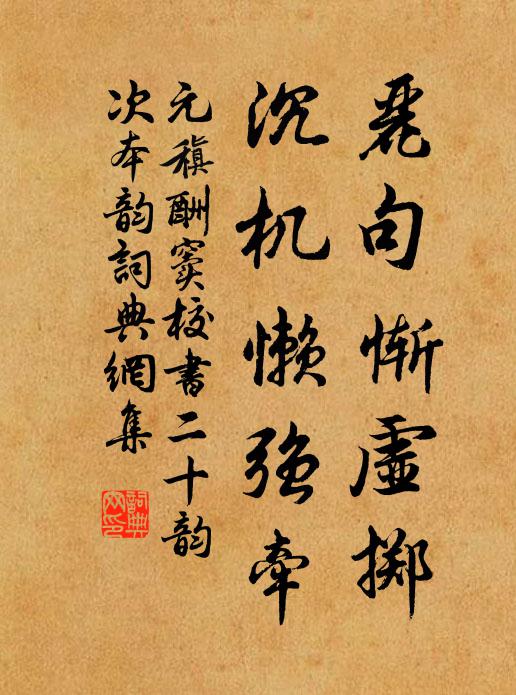 麗句慚虛擲
沉机懶強牽
元稹酬竇校書二十韵
次本韵詞典網集
詞典網印